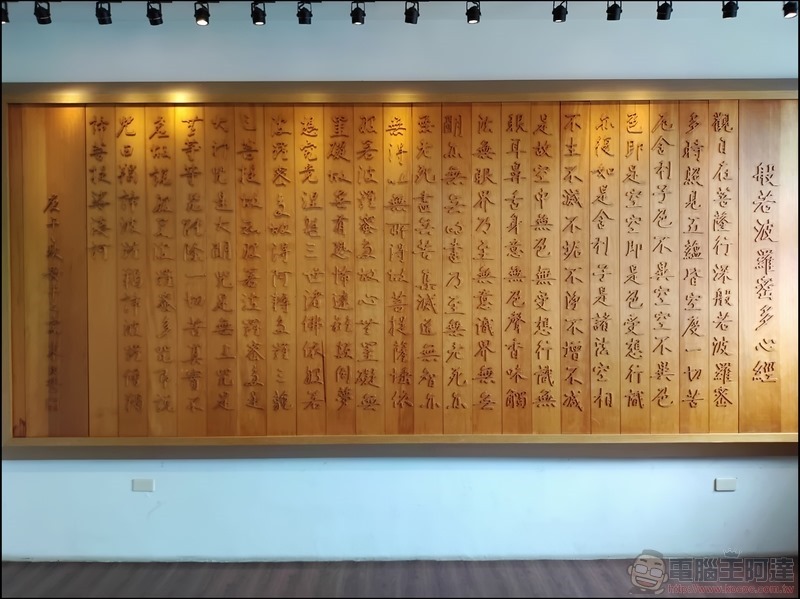 般若波羅密多心經
觀自在菩薩行深般若波羅密
多時照見五蘊皆空度一切苦
厄舍利子色不異空空不異色
色即是空空即是色受想行識
亦復如是舍利子是諸法空相
不生不滅不垢不淨不增不減
是故空中無色無受想行識無
眼耳鼻舌身意無色聲香味觸
法無眼界乃至無意識界無無
明亦無無明盡乃至無老死亦
無老死盡無苦集滅道無智亦
無得以無所得故菩提薩埵依
般若波羅密多故心無罣礙無
罣礙故無有恐怖遠離顛倒夢
想究竟涅槃三世諸佛依般若
波羅密多故得阿耨多羅三藐
三菩提故知般若波羅密多是
大神咒是大明咒是無上咒是
無等等咒能除一切苦真實不
虛故說般若波羅密多咒即說
咒曰揭諦波羅揭諦波羅僧揭
諦菩提薩婆訶
電腦王阿達
http://www.kocpc.com.tw